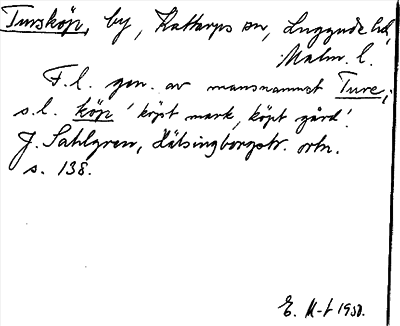 Tursköp, by, Kattarps sn, Luggude hd,
Malm. l.
F.l. gen. av mansnamnet Ture;
s.l. köp 'köpt mark, köpt gård'.
J. Sahlgren, Hälsingborgstr. ortn.
s. 138.
E. M-t 1950.